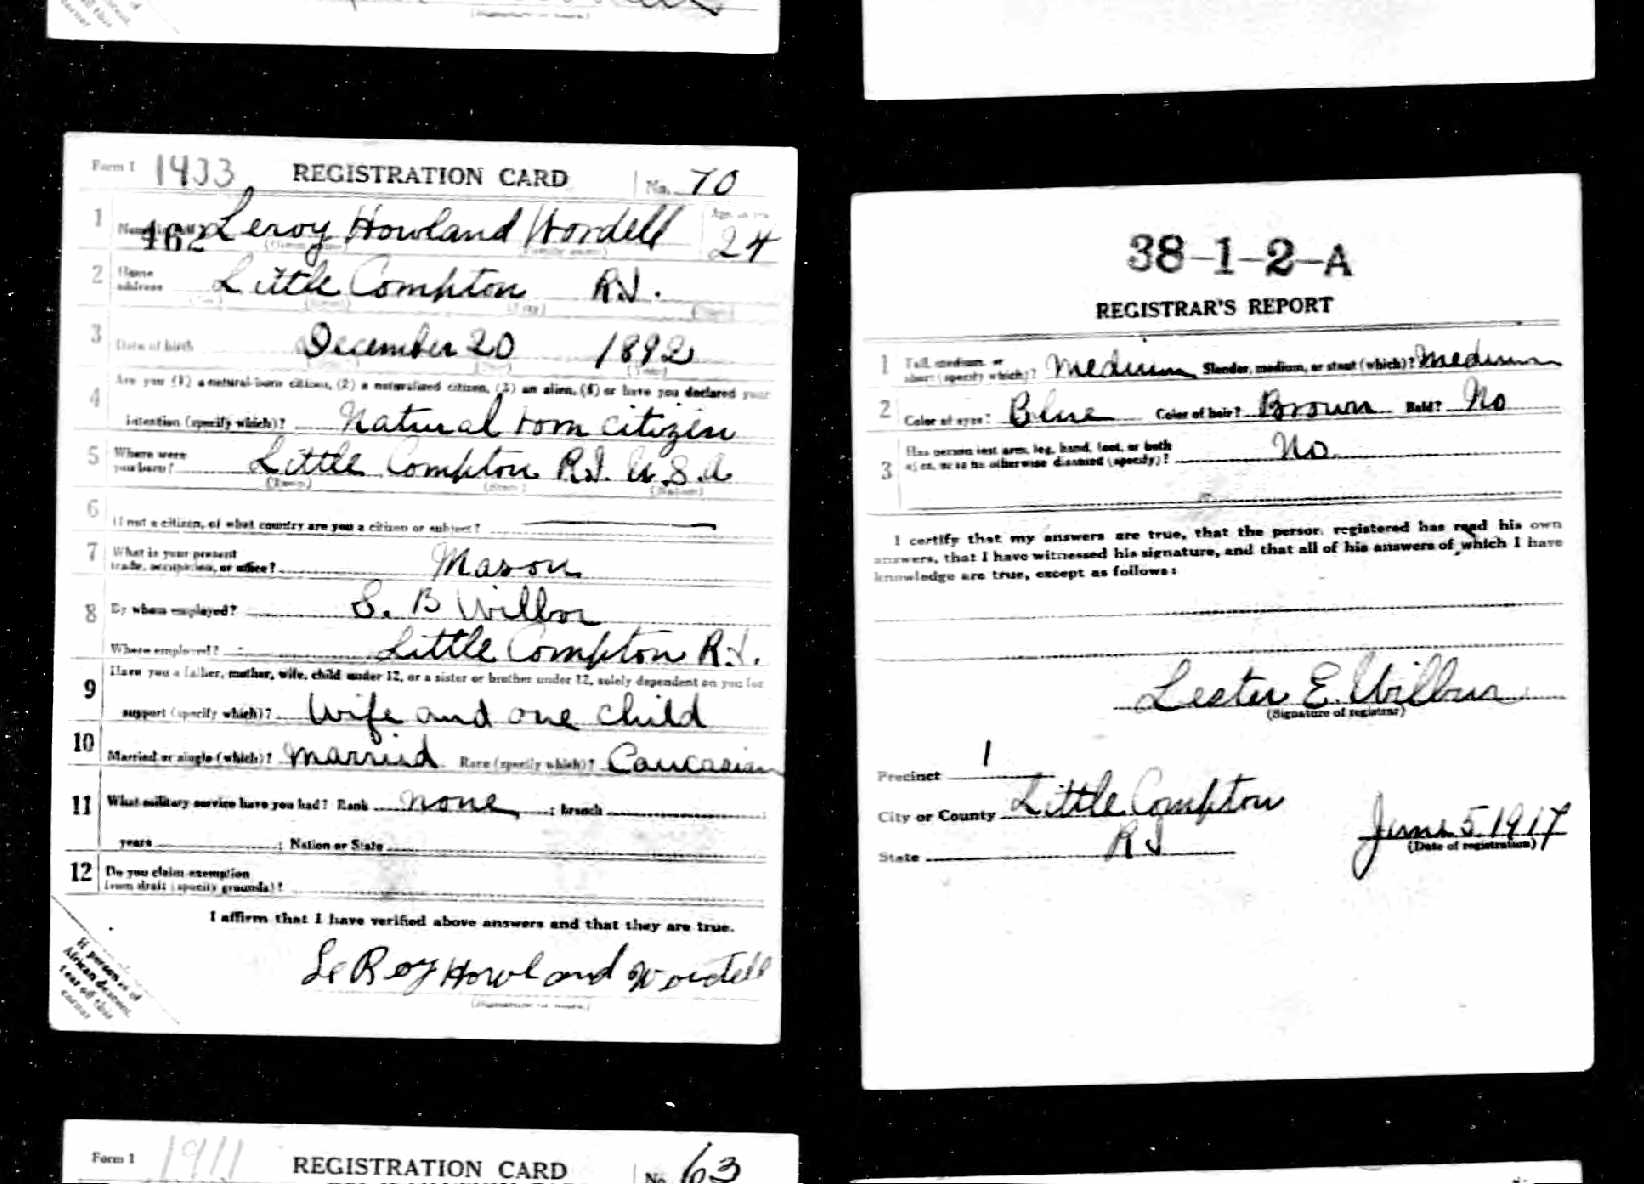 Form 1 1433 REGISTRATION CARD No. 70
1 462 Leroy Howland Wordell 24
2 Home address Little Compton R.I.
3 Date of birth December 20 1892
Are you (1) a natural-born citizen, (2) a naturalized citizen, (3) an alien, (4) or have you declared your
4 intention (specify which)? Natural born citizen
5 Where were you born? Little Compton R.I. U.S.A
(Town) (State) (Nation)
6 If not a citizen, of what country are you a citizen or subject?
7 What is your present trade, occupation, or office? Mason
8 By whom employed? S. B Wilbor
Where employed? Little Compton R.I.
9 Have you a father, mother, wife, child under 12, or a sister or brother under 12, solely dependent on you for
support (specify which)? Wife and one child
10 Married or single (which)? Married Race (specify which)? Caucasian
11 What military service have you had? Rank none ; branch
years ; Nation or State
12 Do you claim exemption from draft (specify grounds)?
I affirm that I have verified above answers and that they are true.
LeRoy Howland Wordell
If person is of
African descent,
tear off this
corner
38-1-2-A
REGISTRAR'S REPORT
1 Tall, medium, or short (specify which)? Medium Slender, medium, or stout (which)? Medium
2 Color of eyes? Blue Color of hair? Brown Bald? No
3 Has person lost arm, leg, hand, foot, or both eyes, or is he otherwise disabled (specify)? No
I certify that my answers are true, that the person registered has read his own
answers, that I have witnessed his signature, and that all of his answers of which I have
knowledge are true, except as follows:
Lester E. Wilbur
(Signature of registrar)
Precinct 1
City or County Little Compton
State RI
June 5 1917
(Date of registration)
Form 1 1911 REGISTRATION CARD No. 63